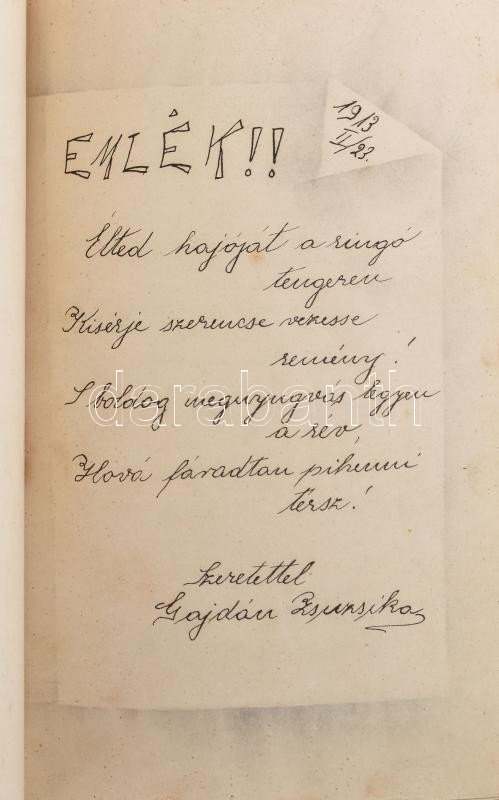 EMLÉK!!
1913
II/23.
Élted hajóját a ringó
tengeren
Kisérje szerencse vezesse
remény!
S boldog megnyugvás légyen
a rév,
Hová fáradtan pihenni
térsz!
Szeretettel
Gajdán Zsuzsika
darabanth